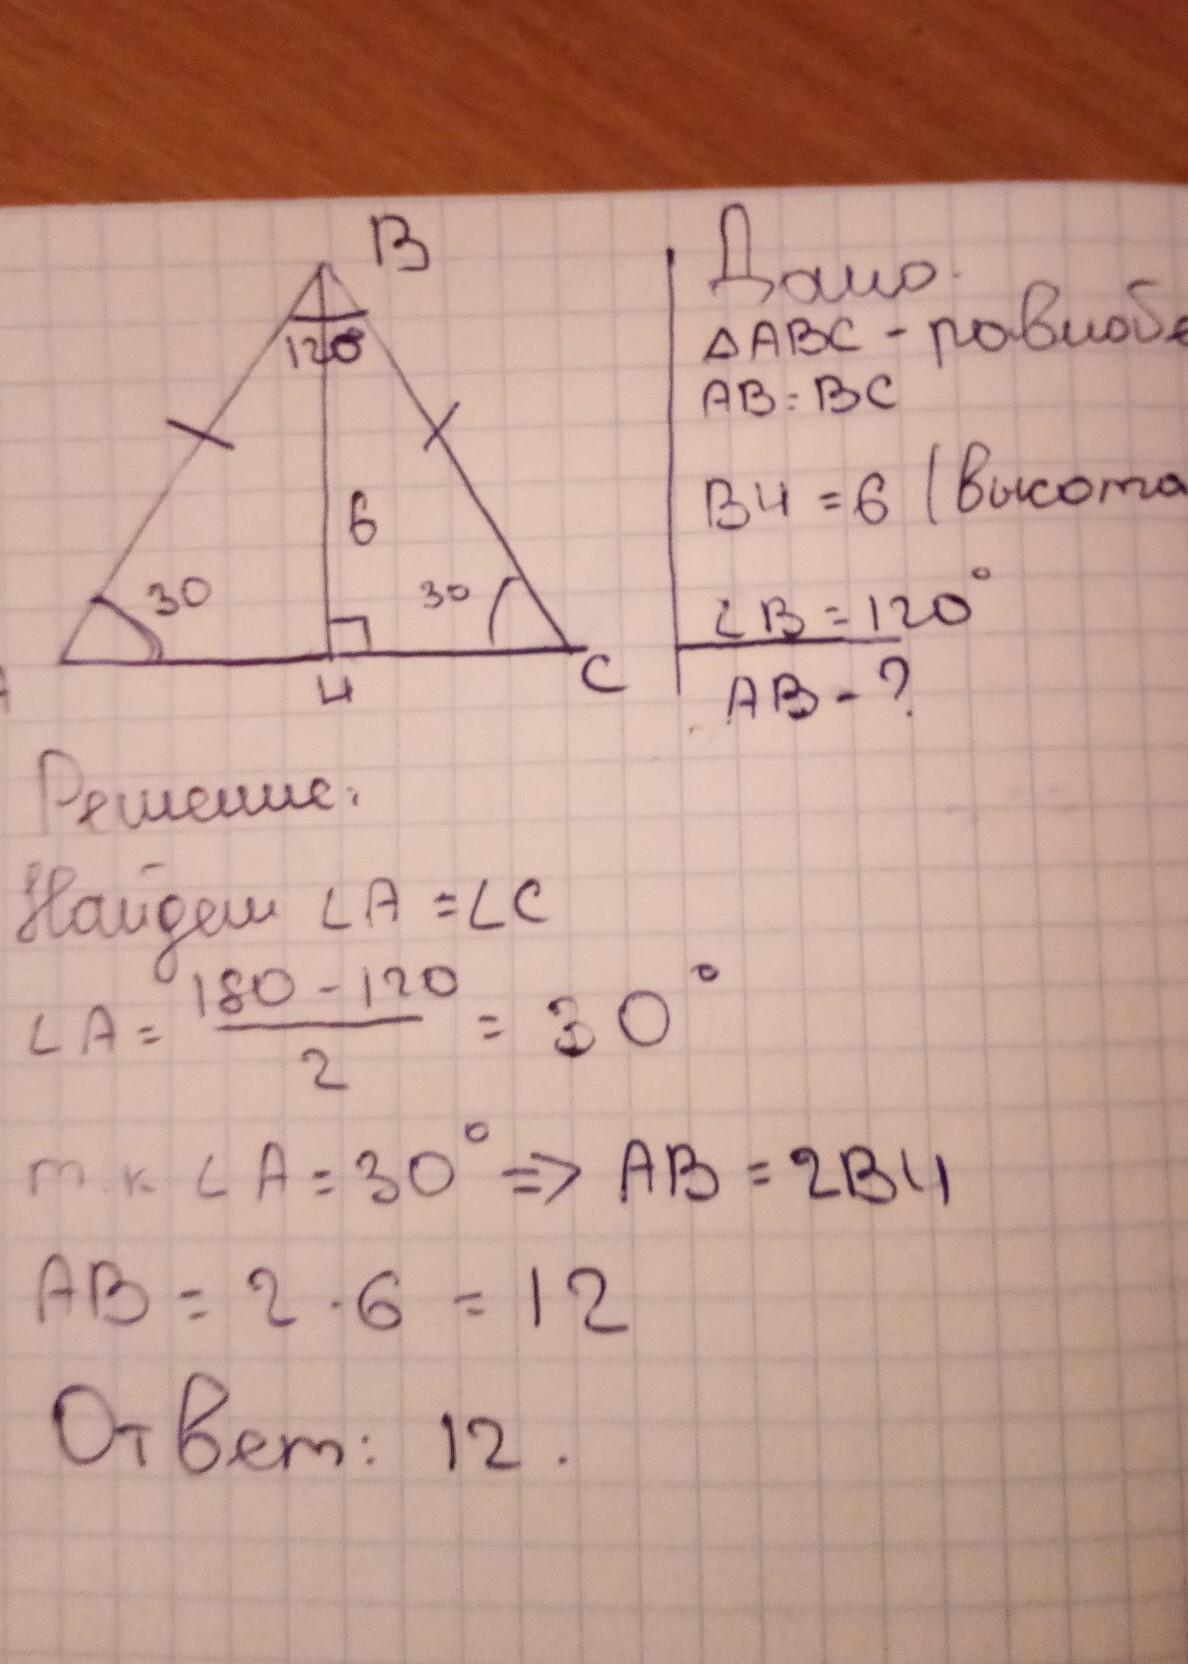 B
120°
6
30
30
A
Ч
C
Дано.
△ABC - равнобе
AB = BC
BЧ = 6 (высота
∠B = 120°
AB - ?
Решение:
Найдем ∠A = ∠C
∠A = (180 - 120)/2 = 30°
т.к ∠A = 30° => AB = 2BЧ
AB = 2 · 6 = 12
Ответ: 12.